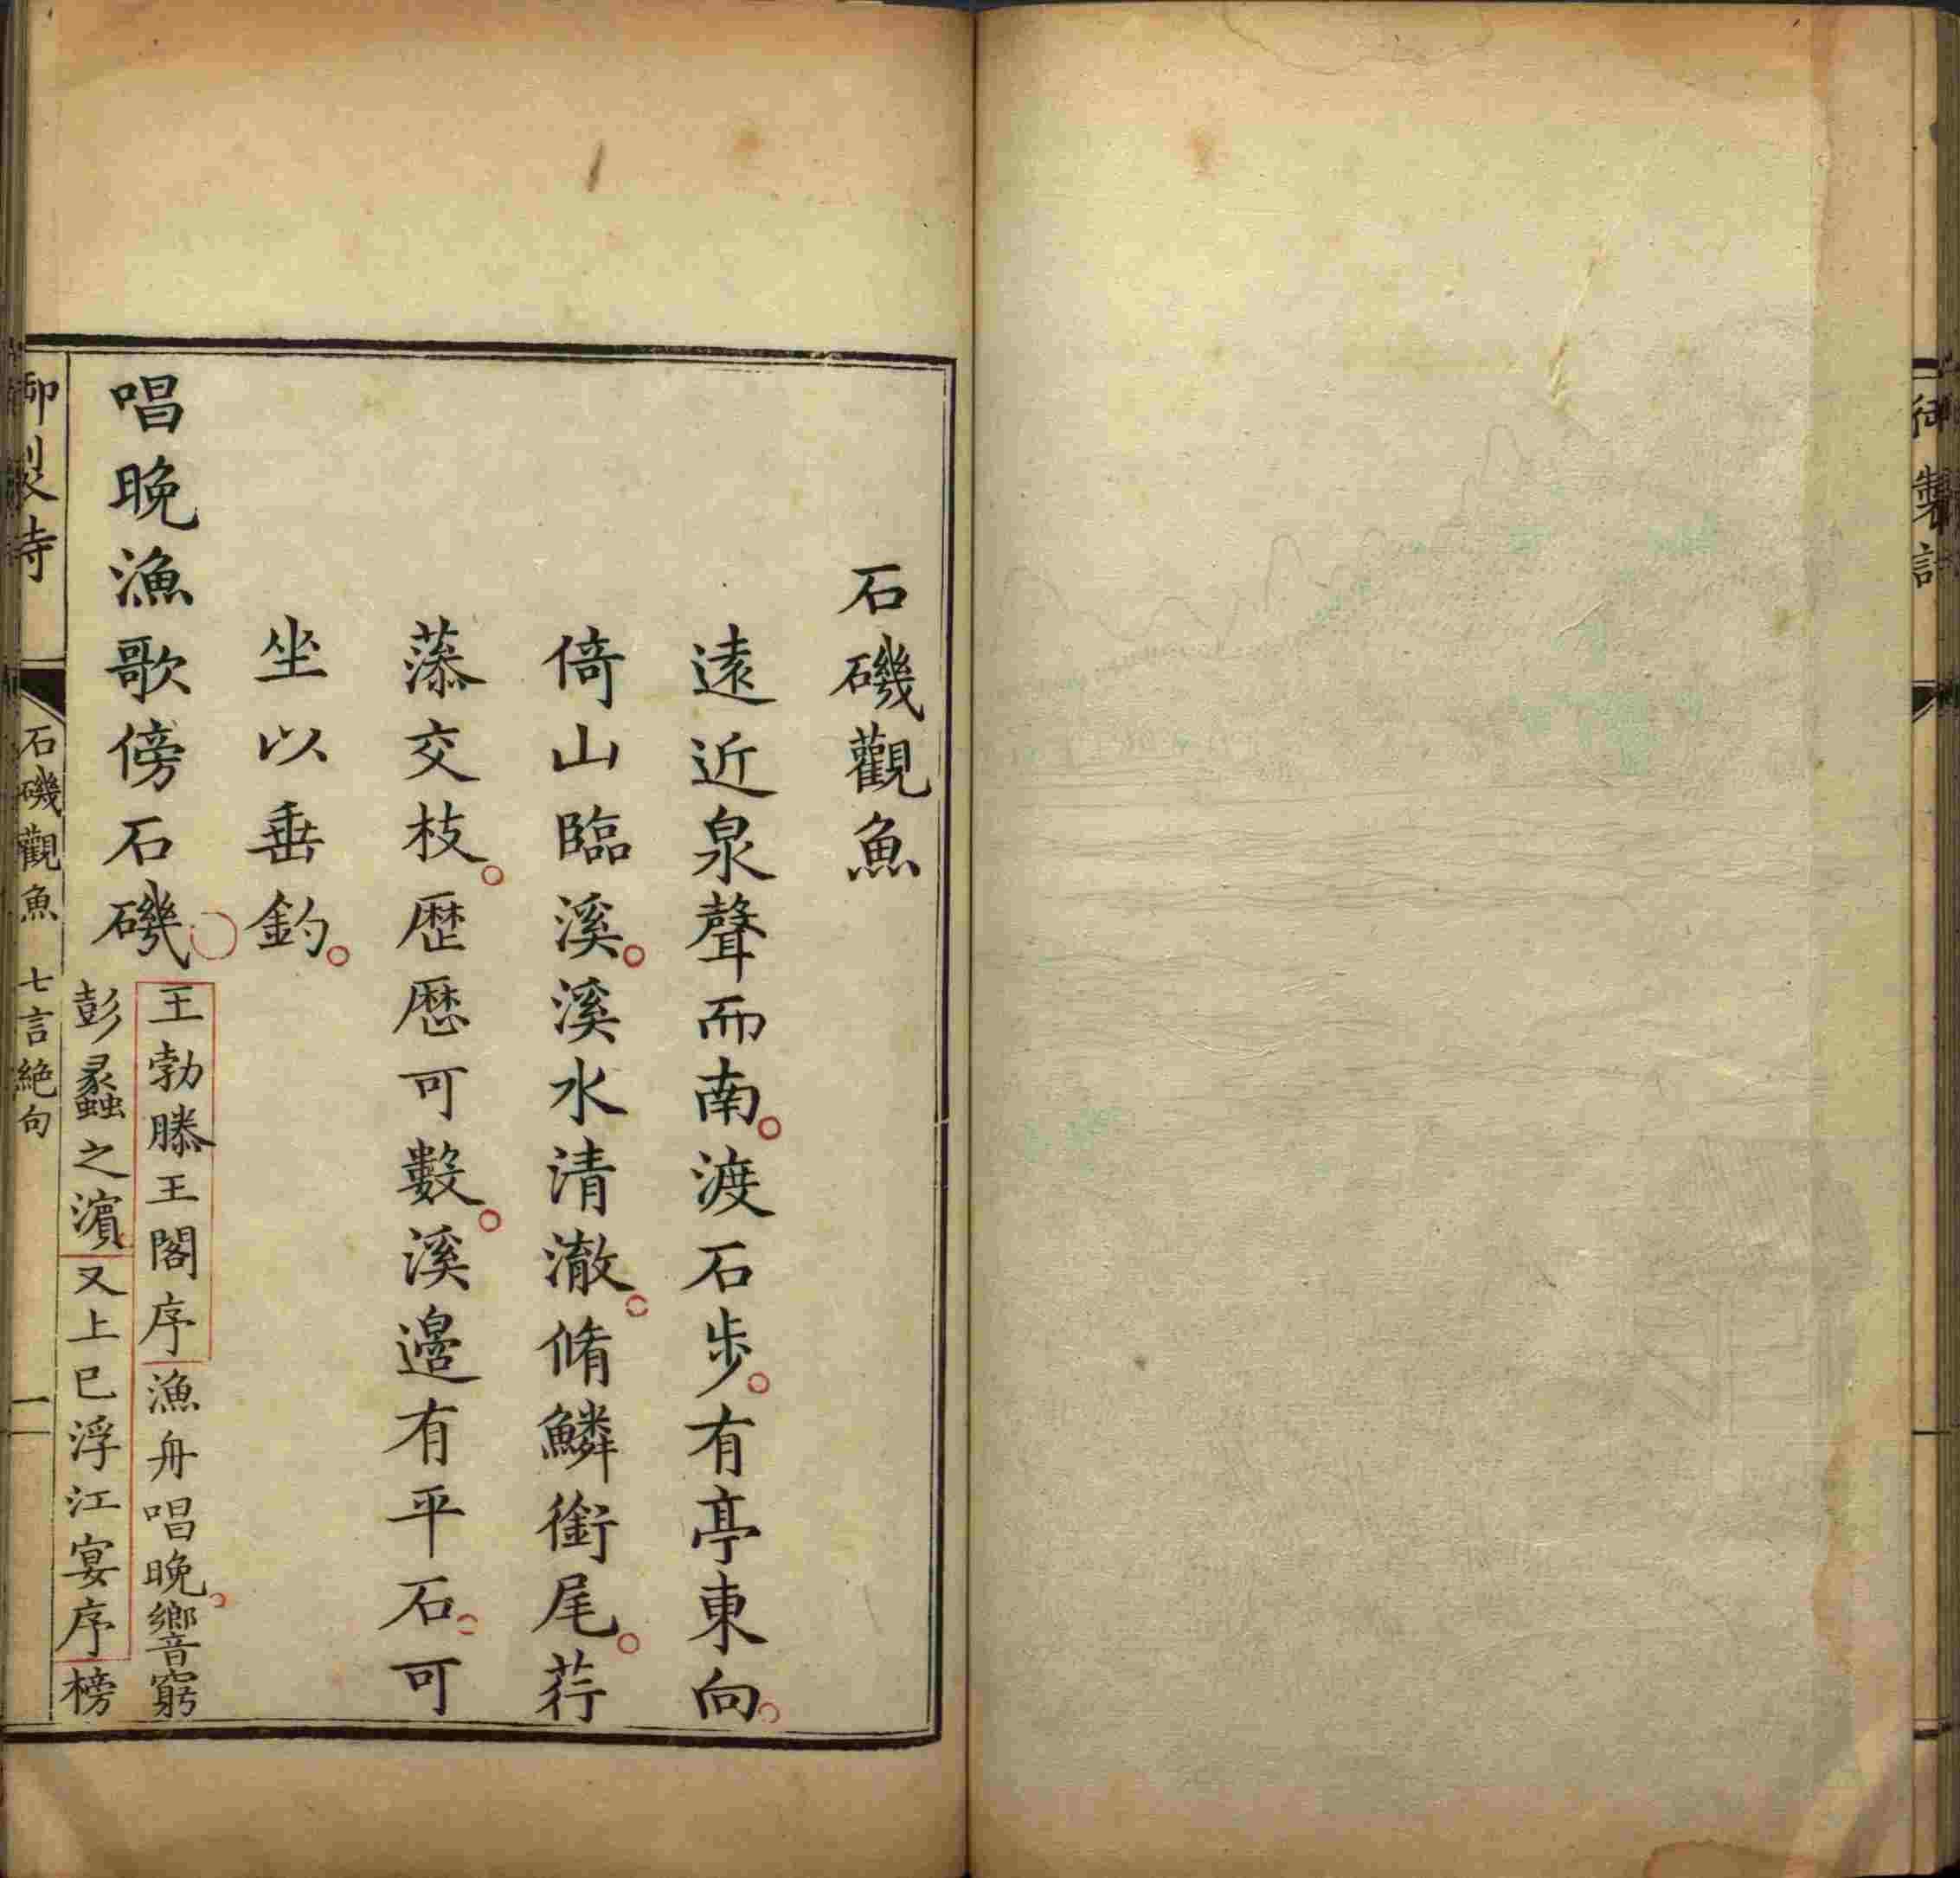 石磯觀魚
遠近泉聲而南渡石步有亭東向
倚山臨溪溪水清澈脩鱗銜尾荇
藻交枝歴歴可數溪邉有平石可
坐以垂釣
唱晚漁歌傍石磯
王勃滕王閣序漁舟唱晚響窮
彭蠡之濵又上巳浮江宴序榜
御製詩
石磯觀魚 七言絶句
御製詩